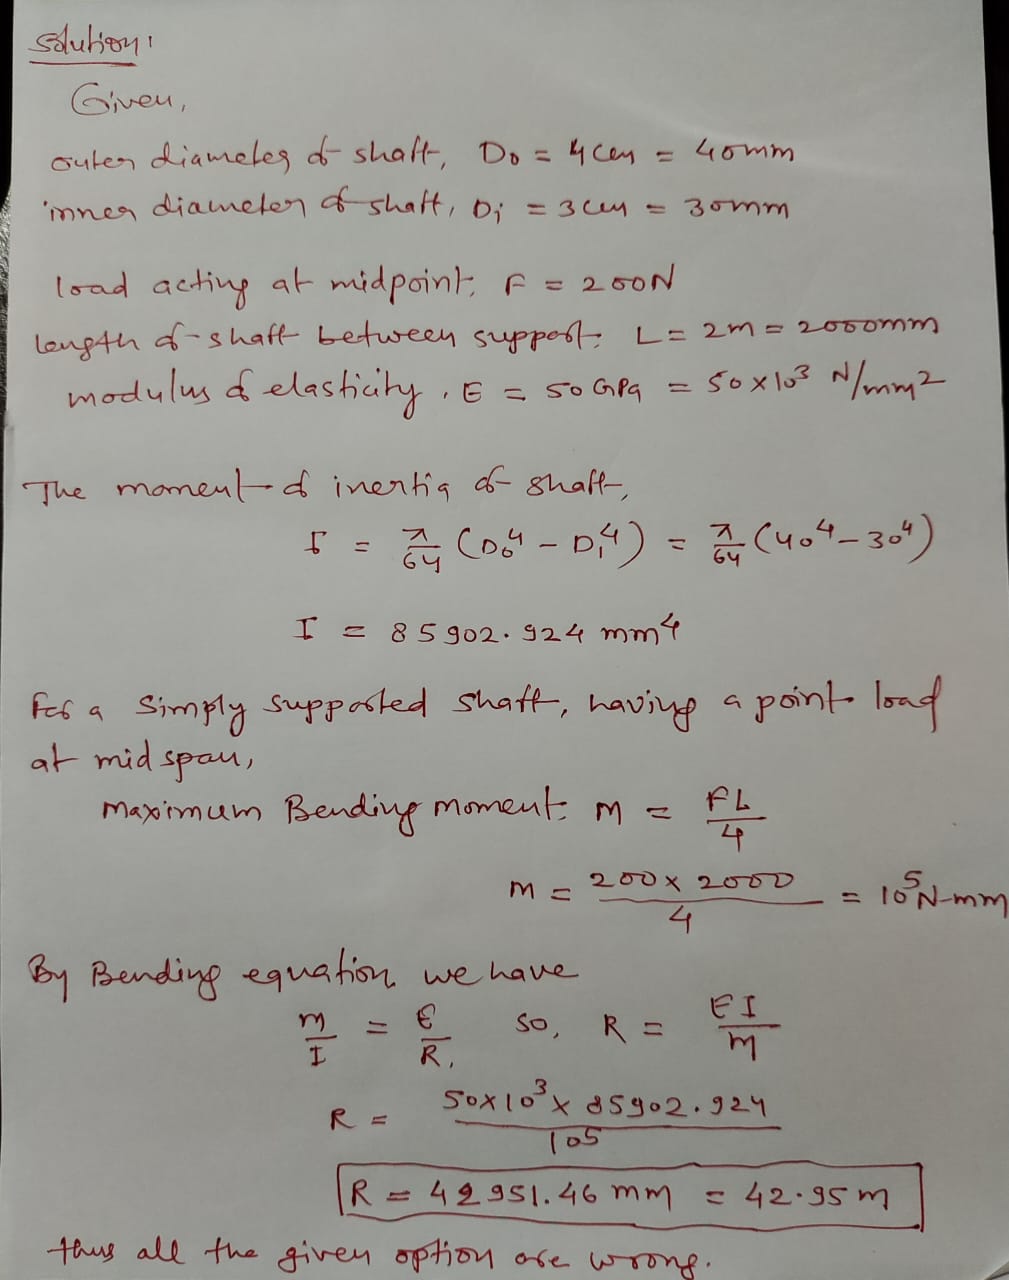 Solution:
Given,
outer diameter of shaft, Do = 4cm = 40mm
inner diameter of shaft, Di = 3cm = 30mm
load acting at midpoint, F = 200N
length of shaft between support, L = 2m = 2000mm
modulus of elasticity, E = 50 GPa = 50×10³ N/mm²
The moment of inertia of shaft,
I = π/64 (Do⁴ – Di⁴) = π/64 (40⁴ – 30⁴)
I = 85902.924 mm⁴
For a simply supported shaft, having a point load
at mid span,
Maximum Bending moment, M = FL/4
M = 200×2000/4 = 10⁵ N-mm
By Bending equation, we have
M/I = E/R, so, R = EI/M
R = 50×10³×85902.924/10⁵
R = 42951.46 mm = 42.95 m
thus all the given option are wrong.